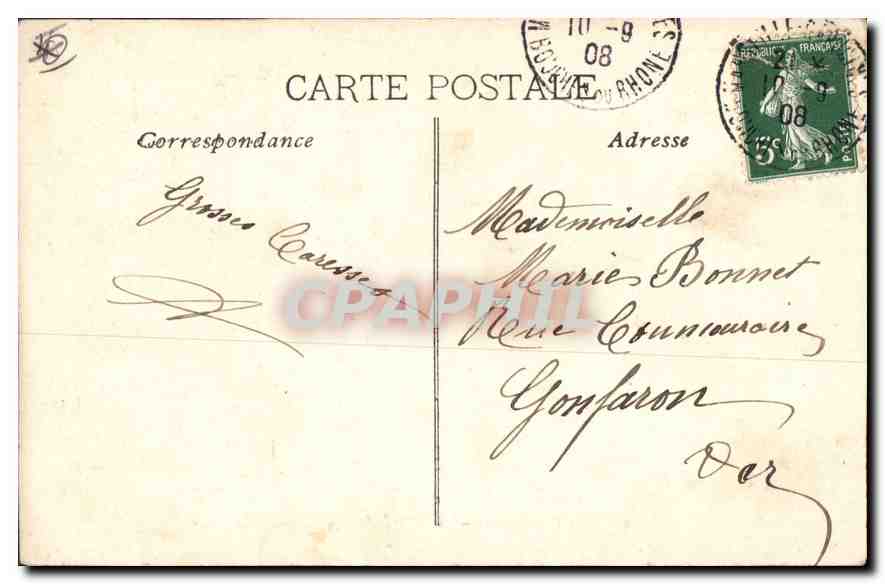 10 - 9
08
BOUCHES DU RHONE
RÉPUBLIQUE FRANÇAISE
10 - 9
08
5c
RHONE
CARTE POSTALE
Correspondance
Adresse
Grosses Caresses
Mademoiselle
Marie Bonnet
Rue
Gonfaron
Var
CPAPHIL